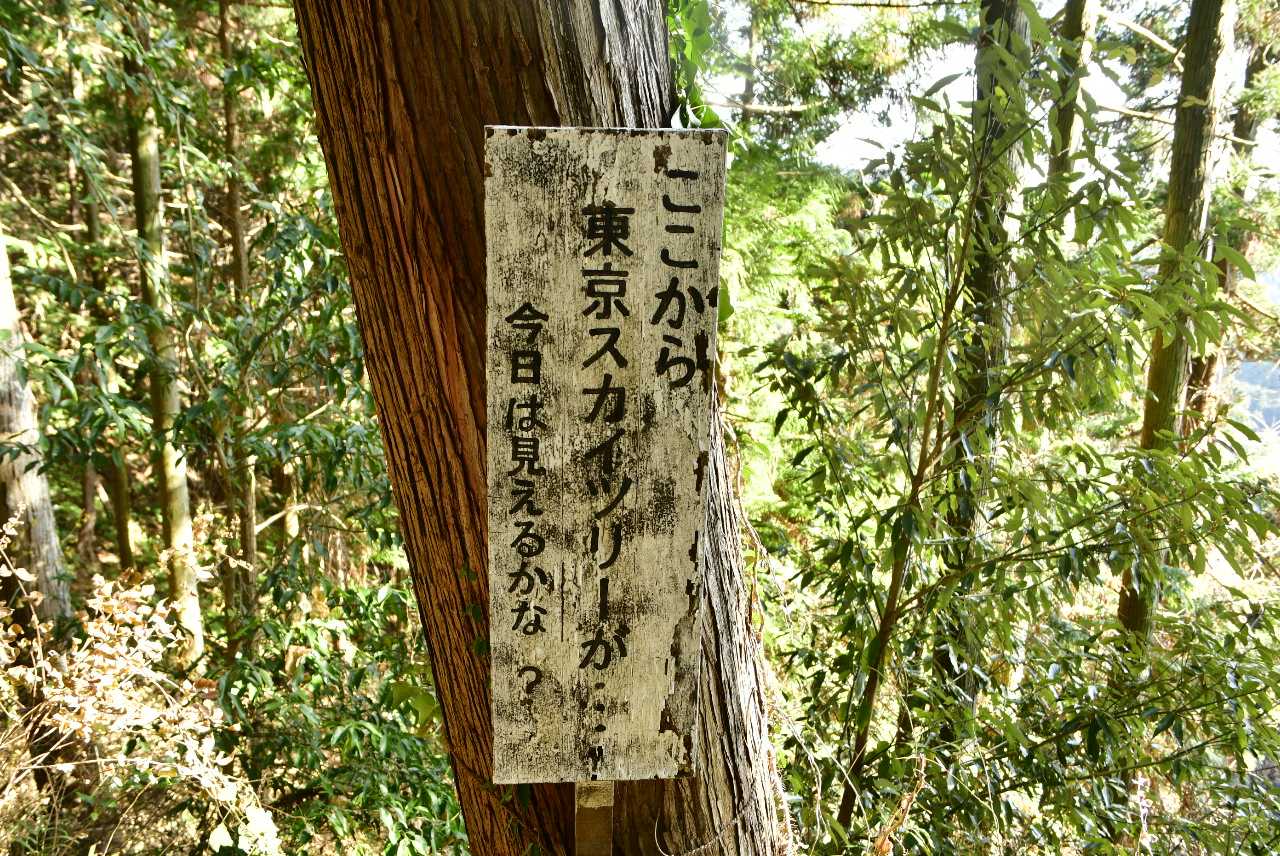 ここから
東京スカイツリーが……
今日は見えるかな？